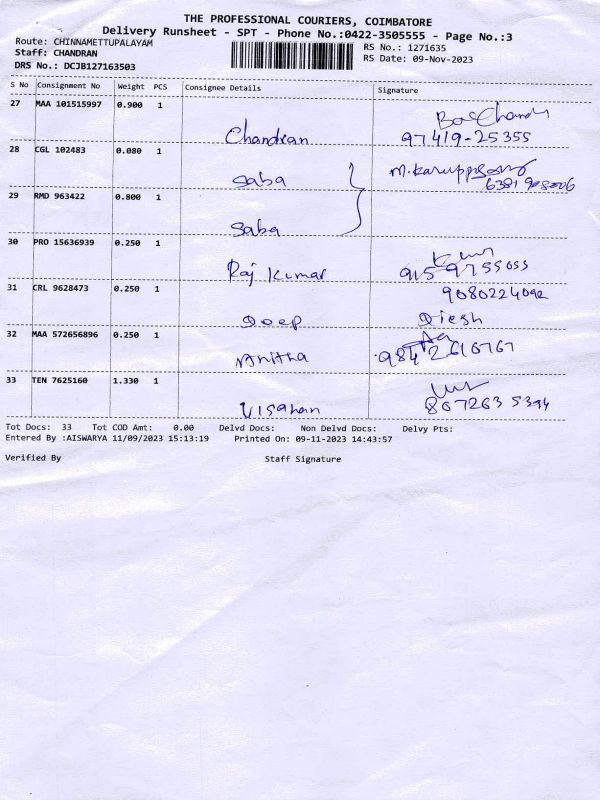 THE PROFESSIONAL COURIERS, COIMBATORE
Delivery Runsheet - SPT - Phone No.:0422-3505555 - Page No.:3
Route: CHINNAMETTUPALAYAM
RS No.: 1271635
Staff: CHANDRAN
RS Date: 09-Nov-2023
DRS No.: DCJB127163503
S No Consignment No Weight PCS Consignee Details Signature
27 MAA 101515997 0.900 1
Chandran 97419-25355
28 CGL 102483 0.080 1
Saba
29 RMD 963422 0.800 1
Saba
30 PRO 15636939 0.250 1
Raj Kumar 9159755055
31 CRL 9628473 0.250 1 9080224092
Deep
32 MAA 572656896 0.250 1
Anitha
33 TEN 7625160 1.330 1
Visahan
Tot Docs: 33 Tot COD Amt: 0.00 Delvd Docs: Non Delvd Docs: Delvy Pts:
Entered By :AISWARYA 11/09/2023 15:13:19 Printed On: 09-11-2023 14:43:57
Verified By Staff Signature